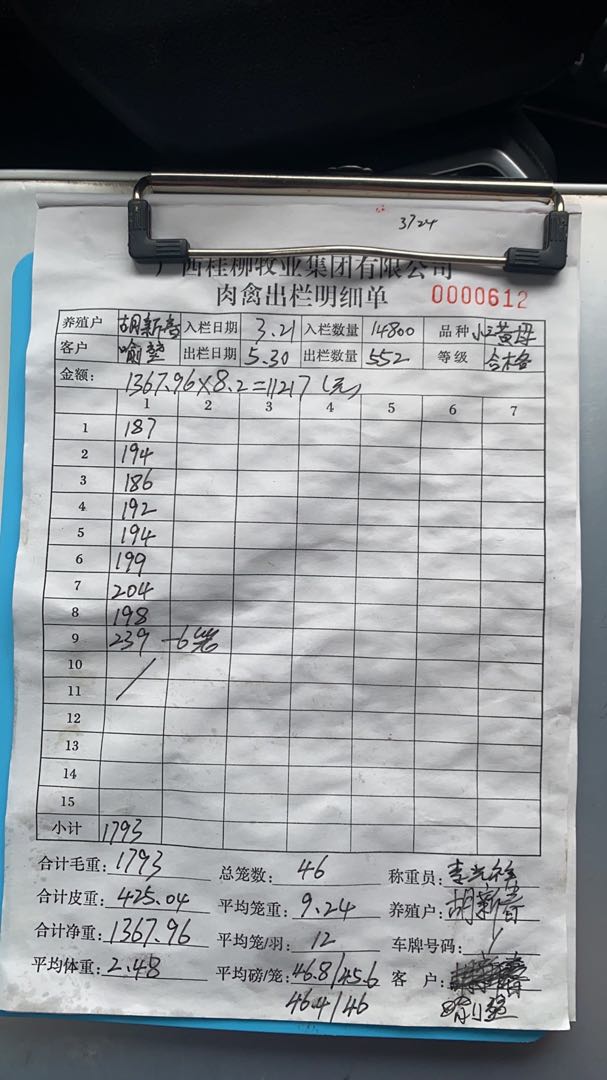 3724
广西桂柳牧业集团有限公司
肉禽出栏明细单 0000612
养殖户 胡新春 入栏日期 3.21 入栏数量 14800 品种
客户 出栏日期 5.30 出栏数量 552 等级 合格
金额: 1367.96×8.2=11217(元)
1 2 3 4 5 6 7
1 187
2 194
3 186
4 192
5 194
6 199
7 204
8 198
9 239 -6笼
10
11
12
13
14
15
小计 1793
合计毛重: 1793 总笼数: 46 称重员:
合计皮重: 425.04 平均笼重: 9.24 养殖户: 胡新春
合计净重: 1367.96 平均笼/羽: 12 车牌号码: /
平均体重: 2.48 平均磅/笼: 46.8/45.6 客 户:
46.4/46